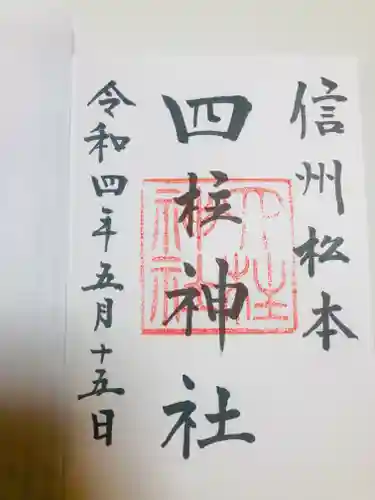 信州松本
四柱神社
令和四年五月十五日
四柱
神社